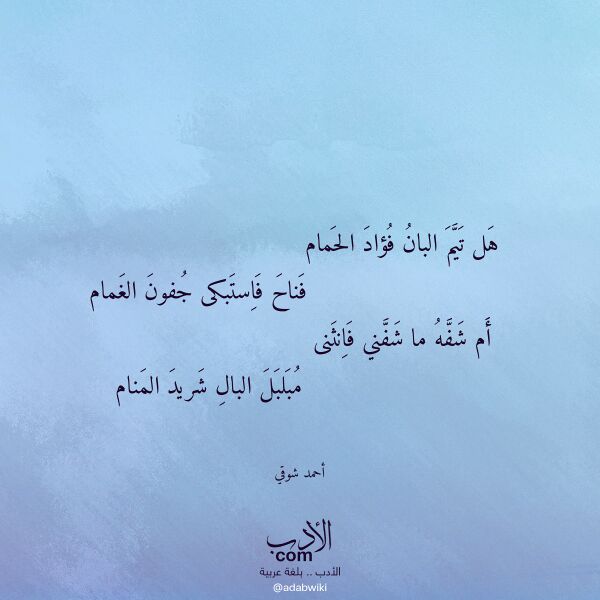 هَل تَيَّمَ البانُ فُؤادَ الحَمام
فَناحَ فَاِستَبكى جُفونَ الغَمام
أَم شَفَّهُ ما شَفَّني فَاِنثَنى
مُبَلبَلَ البالِ شَريدَ المَنام
أحمد شوقي
الأدب
com
الأدب .. بلغة عربية
@adabwiki